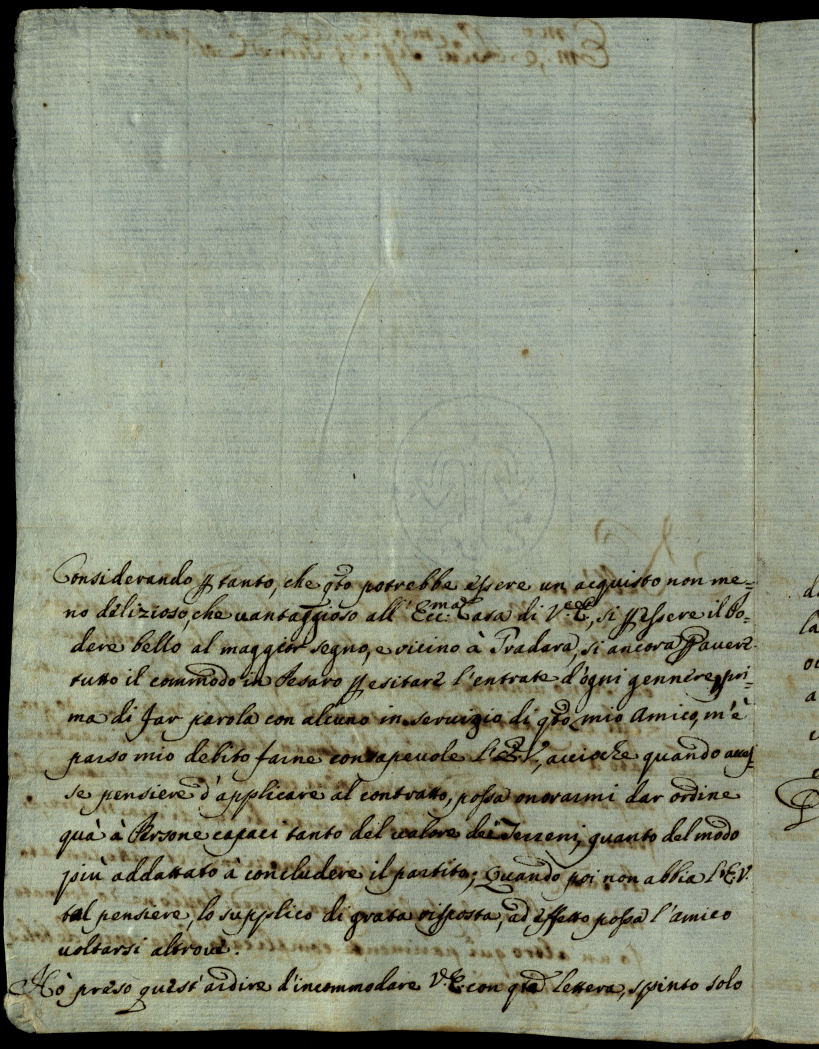 Considerando p tanto, che qto potrebbe essere un acquisto non me=
no delizioso, che vantaggioso all' Ecc.ma Casa di V.E., si p essere il Po=
dere bello al maggior segno, e vicino à Gradara, si ancora p avere
tutto il commodo in Pesaro p esitare l'entrate d'ogni gennere, pri=
ma di far parola con alcuno in servizio di qto mio Amico, m'è
parso mio debito farne consapevole l'E.V., acciochè quando avess
se pensiere d'applicare al contratto, possa onorarmi dar ordine
quà à Persone capaci tanto del valore dei Terreni, quanto del modo
più addattato à concludere il partito; Quando poi non abbia l'E.V.
tal pensiere, lo supplico di grata risposta, ad effetto possa l'amico
voltarsi altrove.
Hò preso quest'ardire d'incommodare V.E. con qta lettera, spinto solo